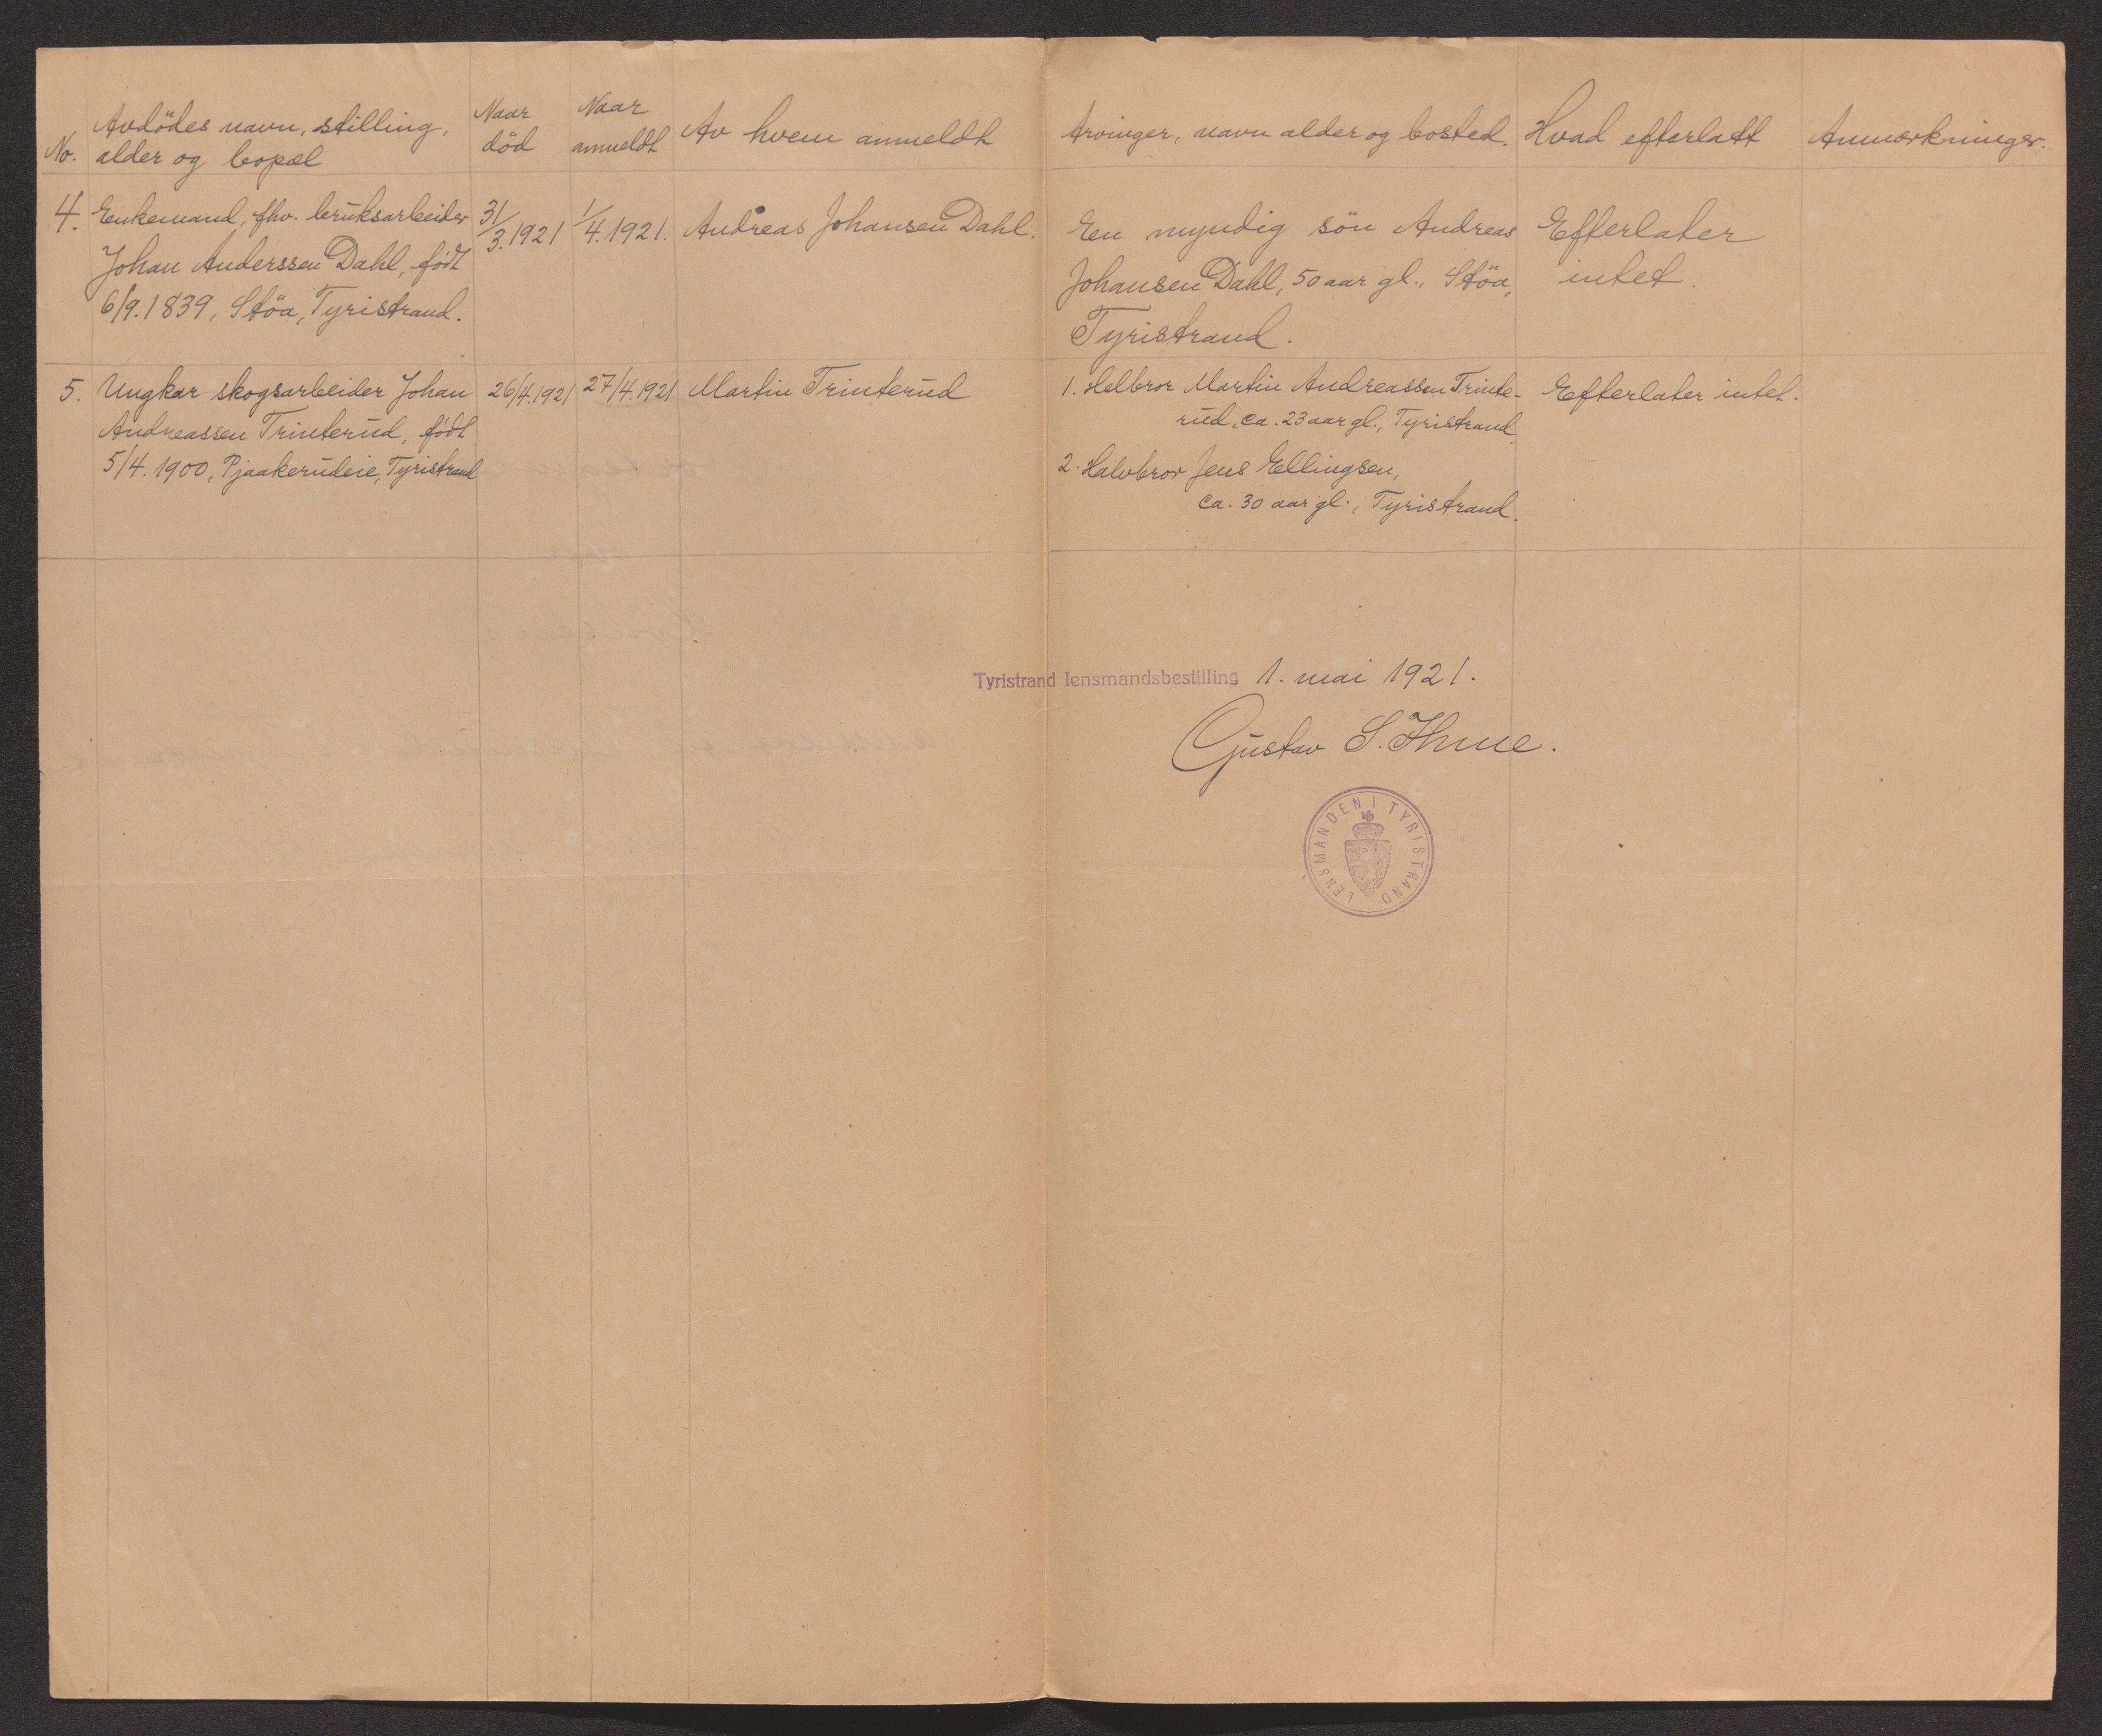 No.
Avdödes navn, stilling,
alder og bopæl
Naar
död
Naar
anmeldt
Av hvem anmeldt
Arvinger, navn alder og bosted.
Hvad efterladt
Anmærkninger.
4.
Enkemand, fhv. bruksarbeider
Johan Anderssen Dahl, födt
6/9. 1839, Stöa, Tyristrand.
31/3. 1921
1/4. 1921.
Andreas Johansen Dahl.
En myndig sön Andreas
Johansen Dahl, 50 aar gl., Stöa,
Tyristrand.
Efterlater
intet.
5.
Ungkar skogsarbeider Johan
Andreassen Trinterud, födt
5/4. 1900, Pjaakerudeie, Tyristrand
26/4. 1921
27/4. 1921
Martin Trinterud
1. Helbror Martin Andreassen Trinte-
rud, ca. 23 aar gl., Tyristrand.
2. Halvbror Jens Ellingsen,
ca. 30 aar gl., Tyristrand.
Efterlater intet.
Tyristrand lensmandsbestilling 1. mai 1921.
Gustav S. Ihme.
LENSMANDEN I TYRISTRAND